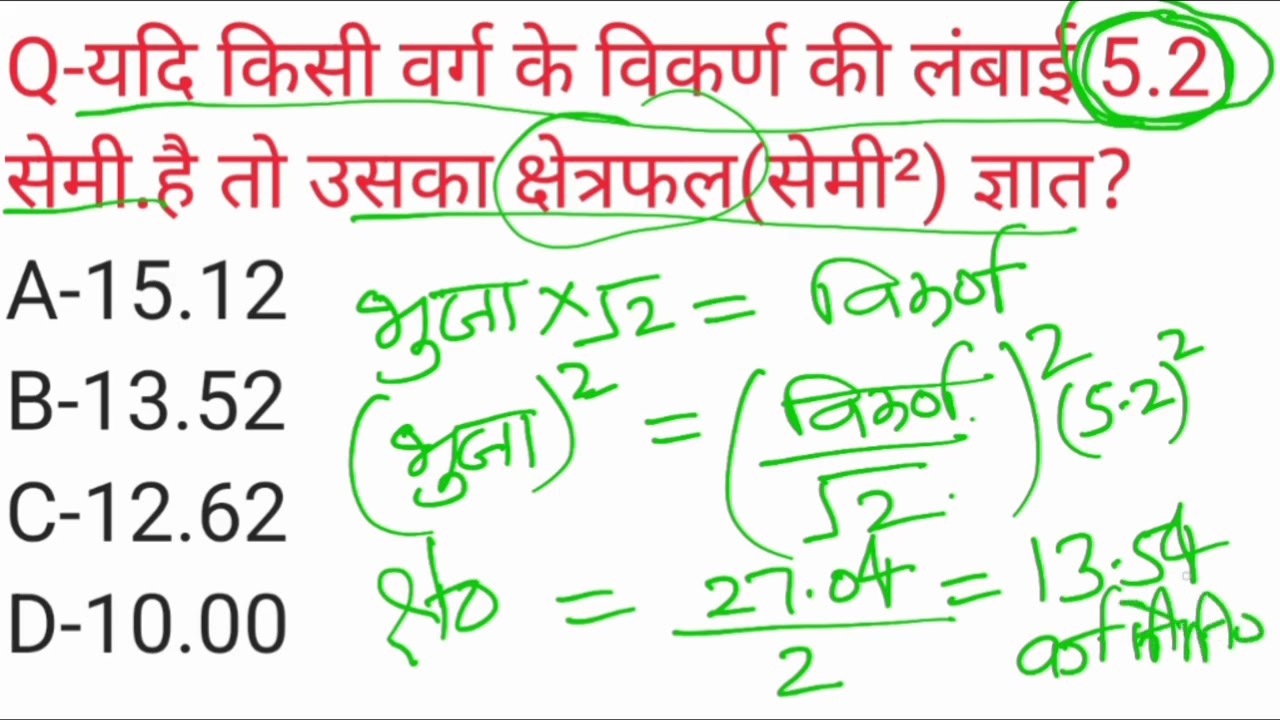 Q-यदि किसी वर्ग के विकर्ण की लंबाई 5.2
सेमी.है तो उसका क्षेत्रफल(सेमी²) ज्ञात?
A-15.12
B-13.52
C-12.62
D-10.00
भुजा × √2 = विकर्ण
(भुजा)² = (विकर्ण/√2)² (5.2)²
क्षे० = 27.04/2 = 13.54
वर्ग सेमी०